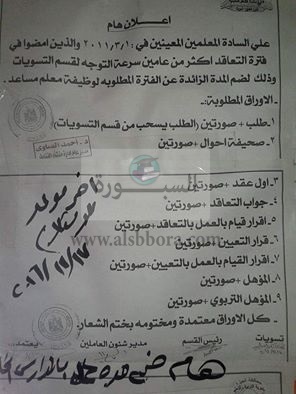 اعلان هام
علي السادة المعلمين المعينين في ٢٠١١/٣/١ والذين امضوا في
فترة التعاقد اكثر من عامين سرعة التوجه لقسم التسويات
وذلك لضم المدة الزائدة عن الفترة المطلوبه لوظيفة معلم مساعد .
الاوراق المطلوبة:-
١- طلب + صورتين (الطلب يسحب من قسم التسويات)
٢- صحيفة احوال + صورتين
٣- اول عقد + صورتين
٤- جواب التعاقد + صورتين
٥- اقرار القيام بالعمل بالتعاقد + صورتين
٦- قرار التعيين + صورتين
٧- اقرار القيام بالعمل بالتعيين + صورتين
٨- المؤهل + صورتين
٩- المؤهل التربوي + صورتين
- كل الاوراق معتمدة ومختومه بختم الشعار.
اخر موعد
٢٠١٦/١١/١٧
السبورة
www.alsbbora.com
تسويات
رئيس القسم
مدير شئون العاملين
يعتمد،،
هام